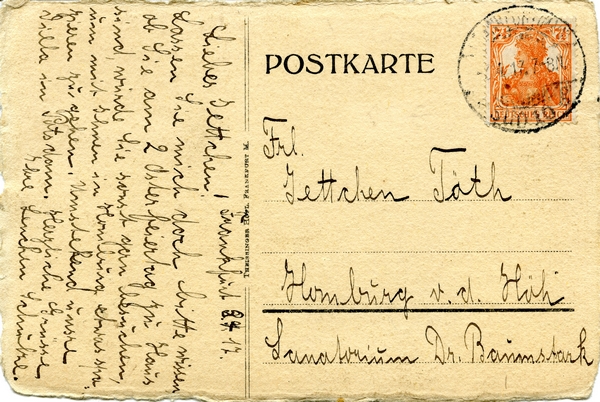 Liebes Jettchen! Frankfurt 17.
Lassen Sie mich doch bitte wissen
ob Sie am 2 Osterfeiertag zu Haus
sind, würde Sie sonst gern besuchen,
um mit Ihnen in Homburg etwas spa-
zieren zu gehen. Umstehend unsre
Villa in Potsdam. Herzliche Grüsse
Ihre Lenchen
THEISSINGER HÖFL. FRANKFURT M.
POSTKARTE
Frl.
Jettchen Tóth
Homburg v. d. Höh
Sanatorium Dr. Baumstark